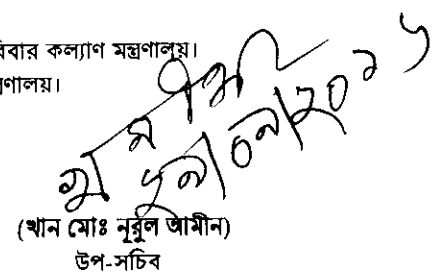 বার কল্যাণ মন্ত্রণালয়।
ণালয়।
(খান মোঃ নূরুল আমীন)
উপ-সচিব